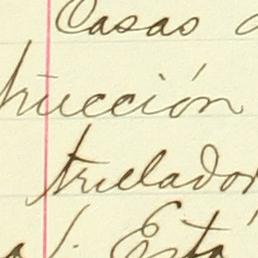 Casas
trucción
truelador
Está